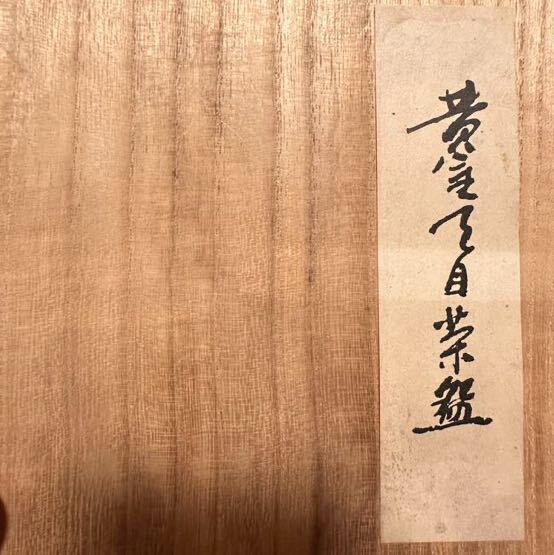 黄金天目茶盌